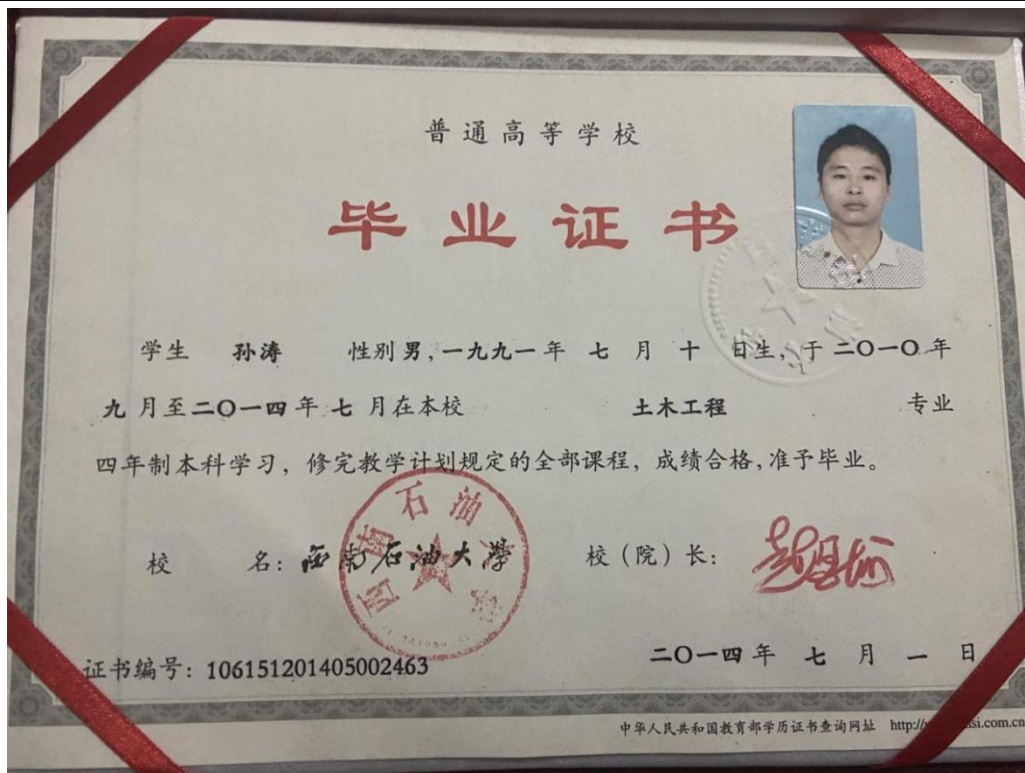 普通高等学校
毕业证书
学生 孙涛 性别 男，一九九一年 七 月 十 日生，于二〇一〇年
九 月至二〇一四年 七 月在本校 土木工程 专业
四年制本科学习，修完教学计划规定的全部课程，成绩合格，准予毕业。
校 名：西南石油大學 校（院）长：
西南石油大学
证书编号：106151201405002463 二〇一四年 七 月 一 日
中华人民共和国教育部学历证书查询网址 http://
si.com.cn